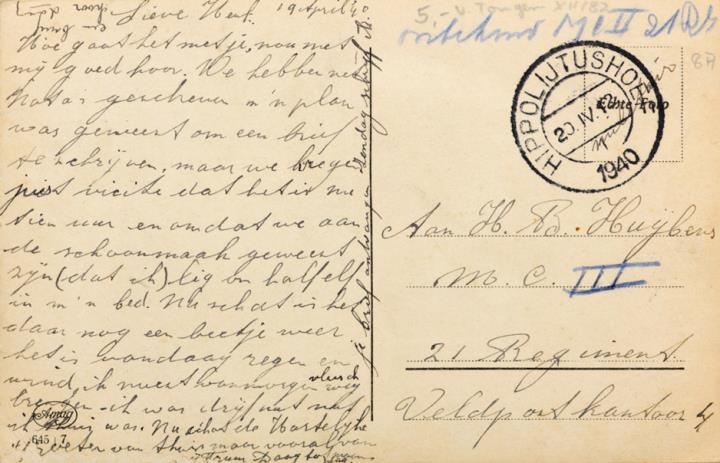 19 April 40
Lieve Henk.
Hoe gaat het met je, nou met
mij goed hoor. We hebben net
Nota's geschreven m'n plan
was geweest om een brief
te schrijven, maar we kregen
juist visite dat het is nu
tien uur en omdat we aan
de schoonmaak geweest
zijn (dat ik) lig om half elf
in m'n bed. Nu schat is het
daar nog een beetje weer.
het is vandaag regen en
wind, ik moest vanmorgen vleesch weg
brengen ik was drijfnat
ik was. Nu schat de Hartelijke
groeten van thuis maar vooral van
je brief ontvangen Zondag schrijf ik.
5. v. Tongen XII 182
M C II 21 R
87
HIPPOLIJTUSHOEF
20.IV.12
1940
Echte Foto
Aan H. B. Huijbens
M. C. III
21 Regiment.
Veldpostkantoor 4
Amag
645 7